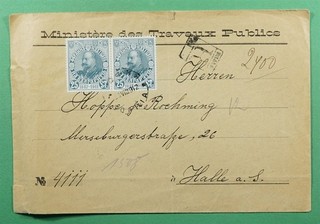 Ministère des Travaux Publics
2400
Herren
Hoppe & Roehming
Merseburgerstraße, 26
1575
№ 4111
à Halle a. S.
25 25 25 25